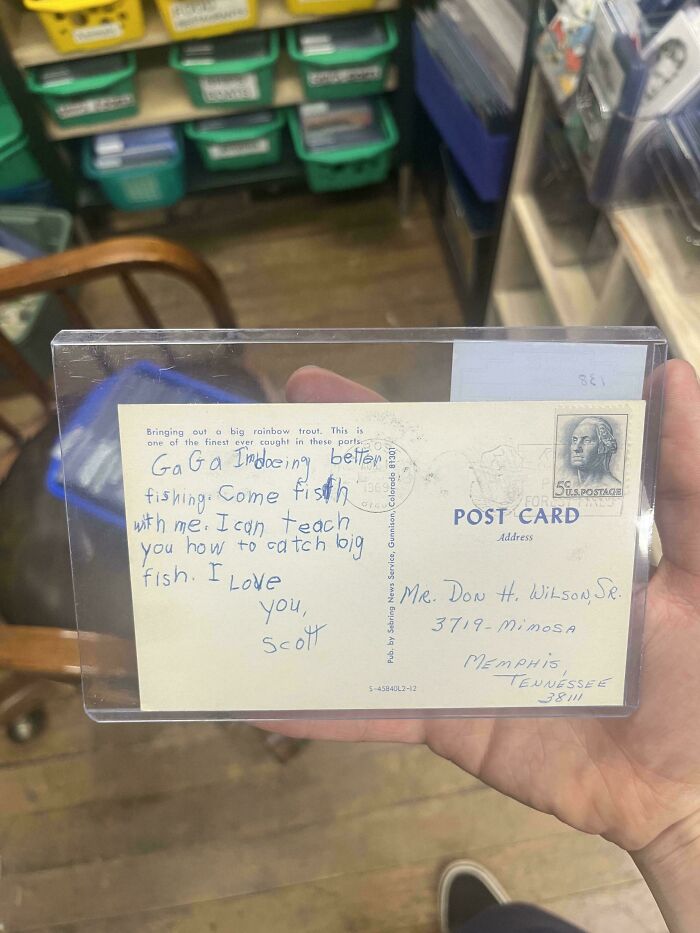 138
Bringing out a big rainbow trout. This is
one of the finest ever caught in these parts.
Ga Ga Imdoeing better
fishing. Come fish
with me. I can teach
you how to catch big
fish. I Love
you,
Scott
Pub. by Sebring News Service, Gunnison, Colorado 81301
S-45840L2-12
5c U.S. POSTAGE
POST CARD
Address
Mr. Don H. Wilson, Sr.
3719-Mimosa
Memphis,
Tennessee
38111